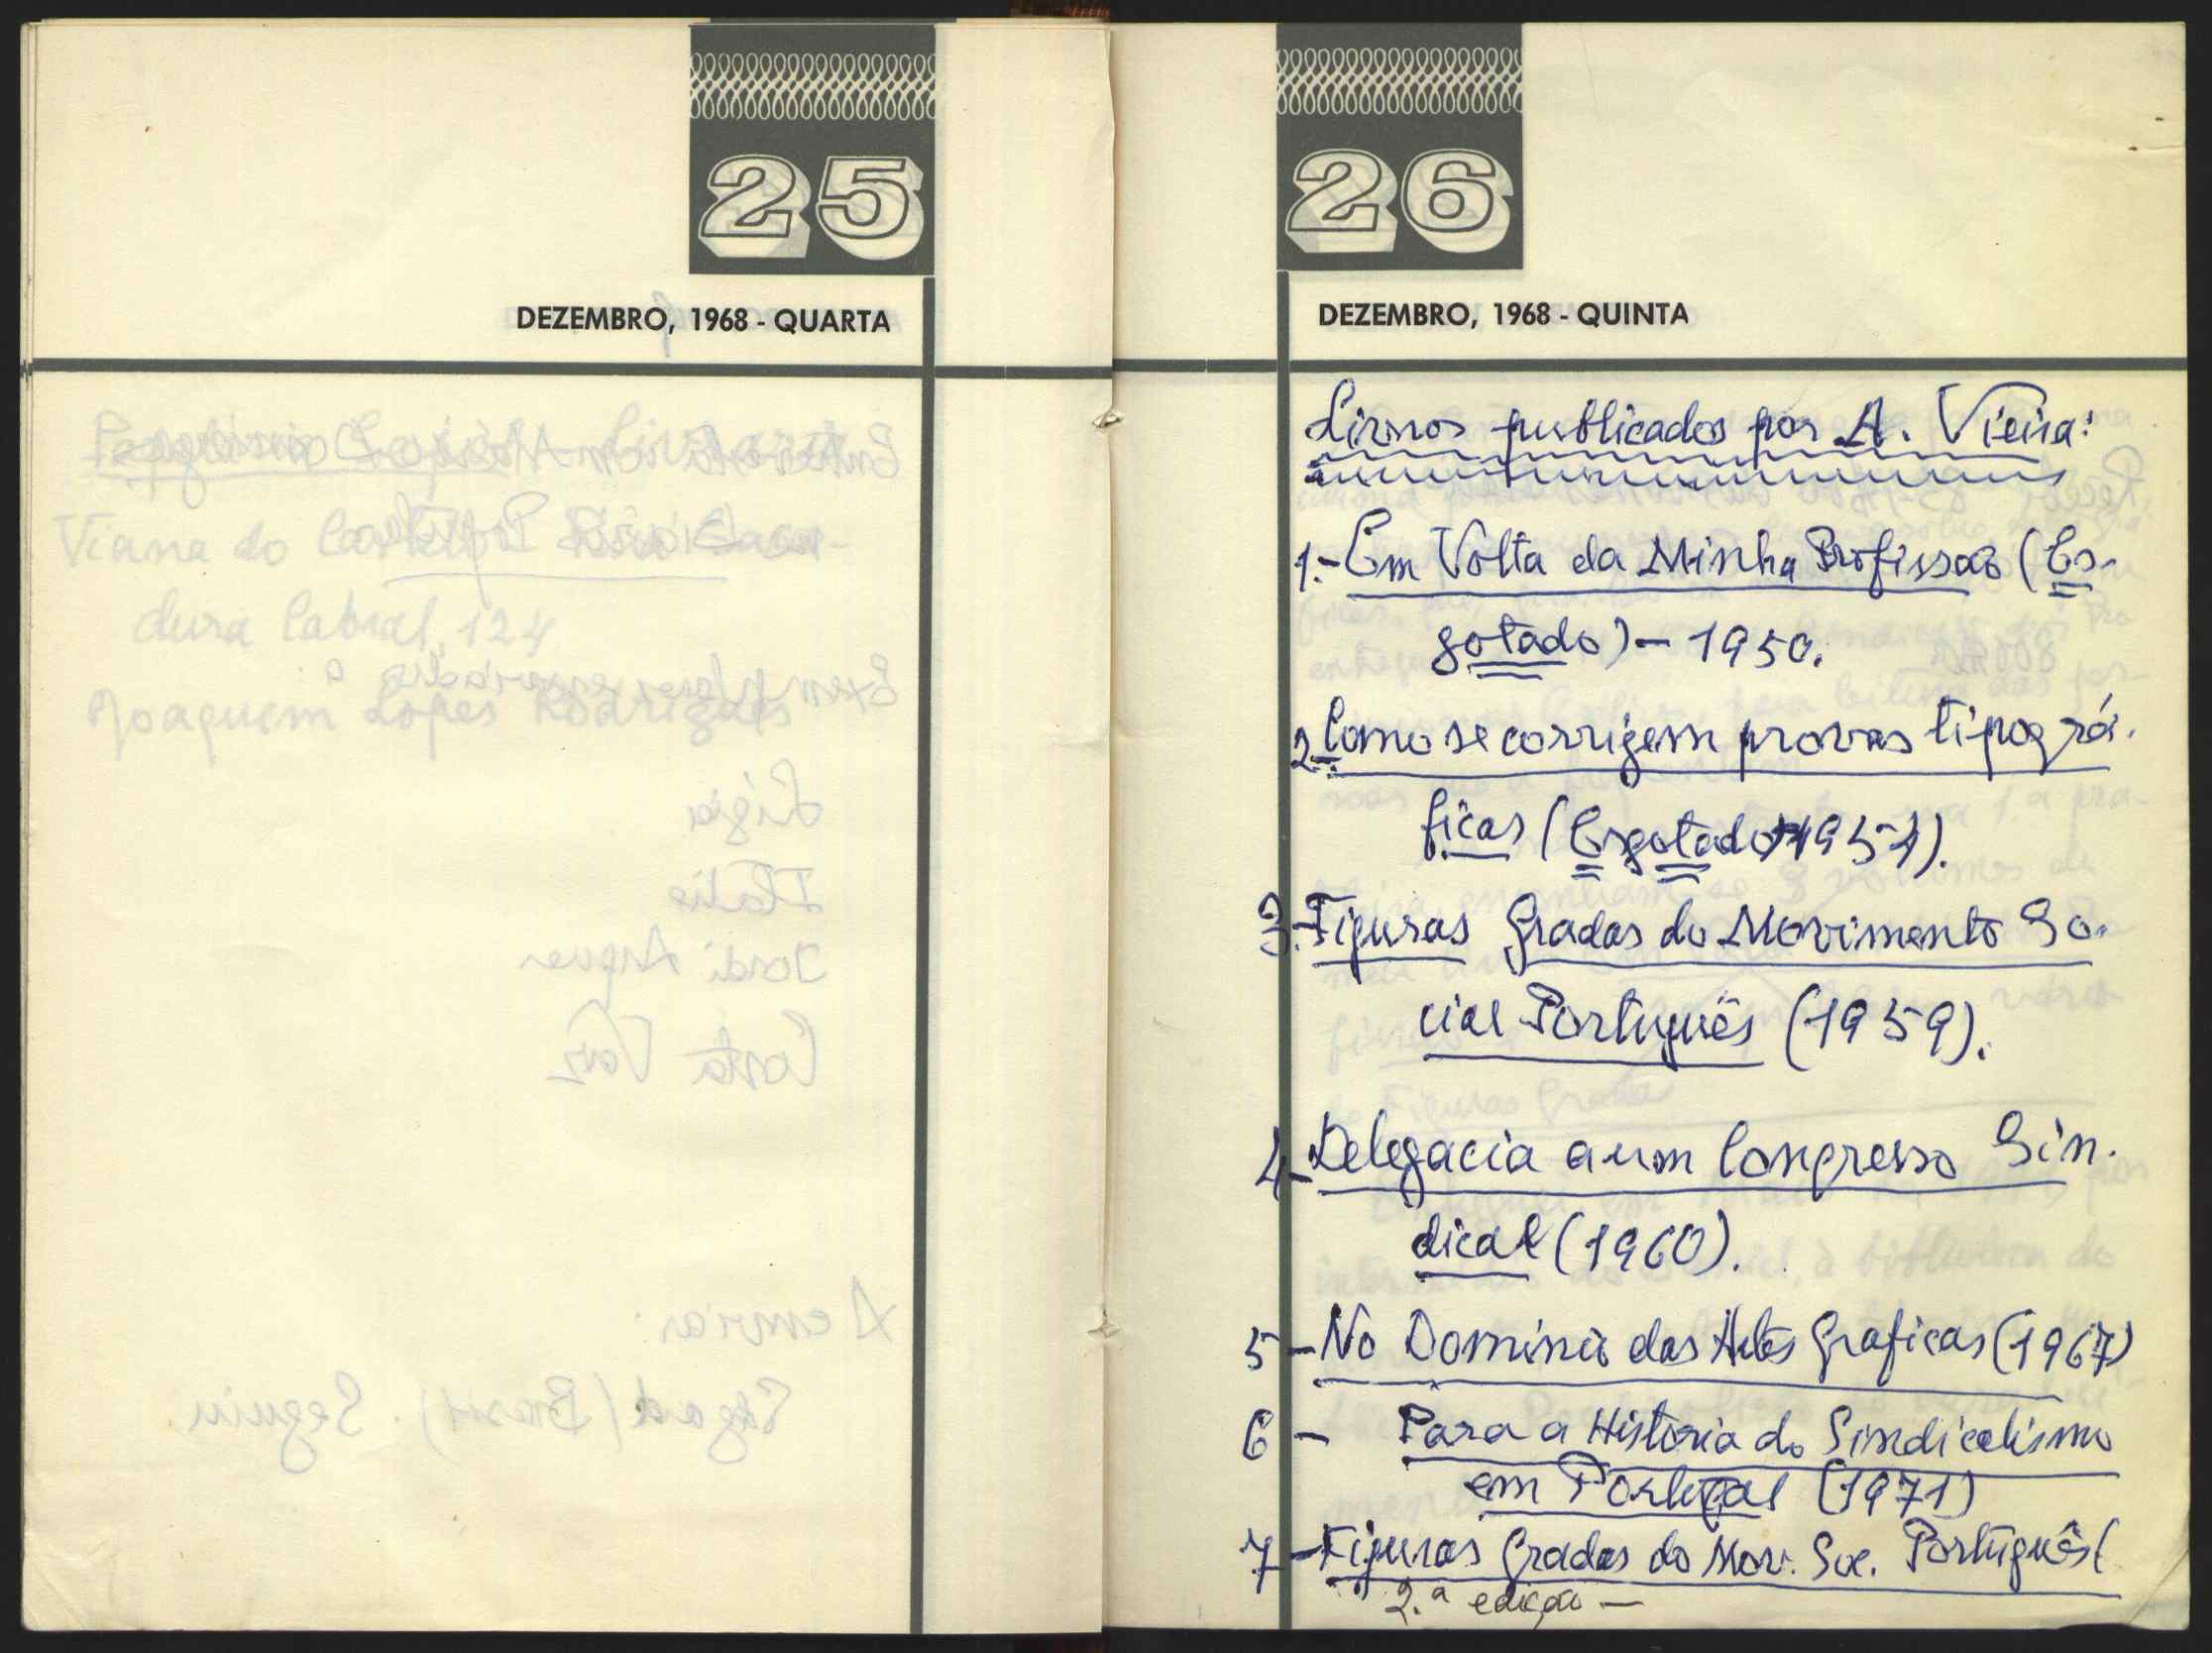 25
DEZEMBRO, 1968 - QUARTA
Viana do Castelo
dura Cabral, 124
Joaquim Lopes Rodrigues
Lígia
Jordi Arquer
Costa Vaz
A enviar:
26
DEZEMBRO, 1968 - QUINTA
Livros publicados por A. Vieira:
1.- Em Volta da Minha Profissão (Es-
gotado) - 1950.
2. Como se corrigem provas tipográ-
ficas (Esgotado) 1951).
3.- Figuras Gradas do Movimento So-
cial Português (1959).
4- Delegacia a um Congresso Sin-
dical (1960).
5 - No Dominio das Artes Graficas (1967)
6 - Para a Historia do Sindicalismo
em Portugal (1971)
7 - Figuras Gradas do Mov. Soc. Português (
2.ª edição -